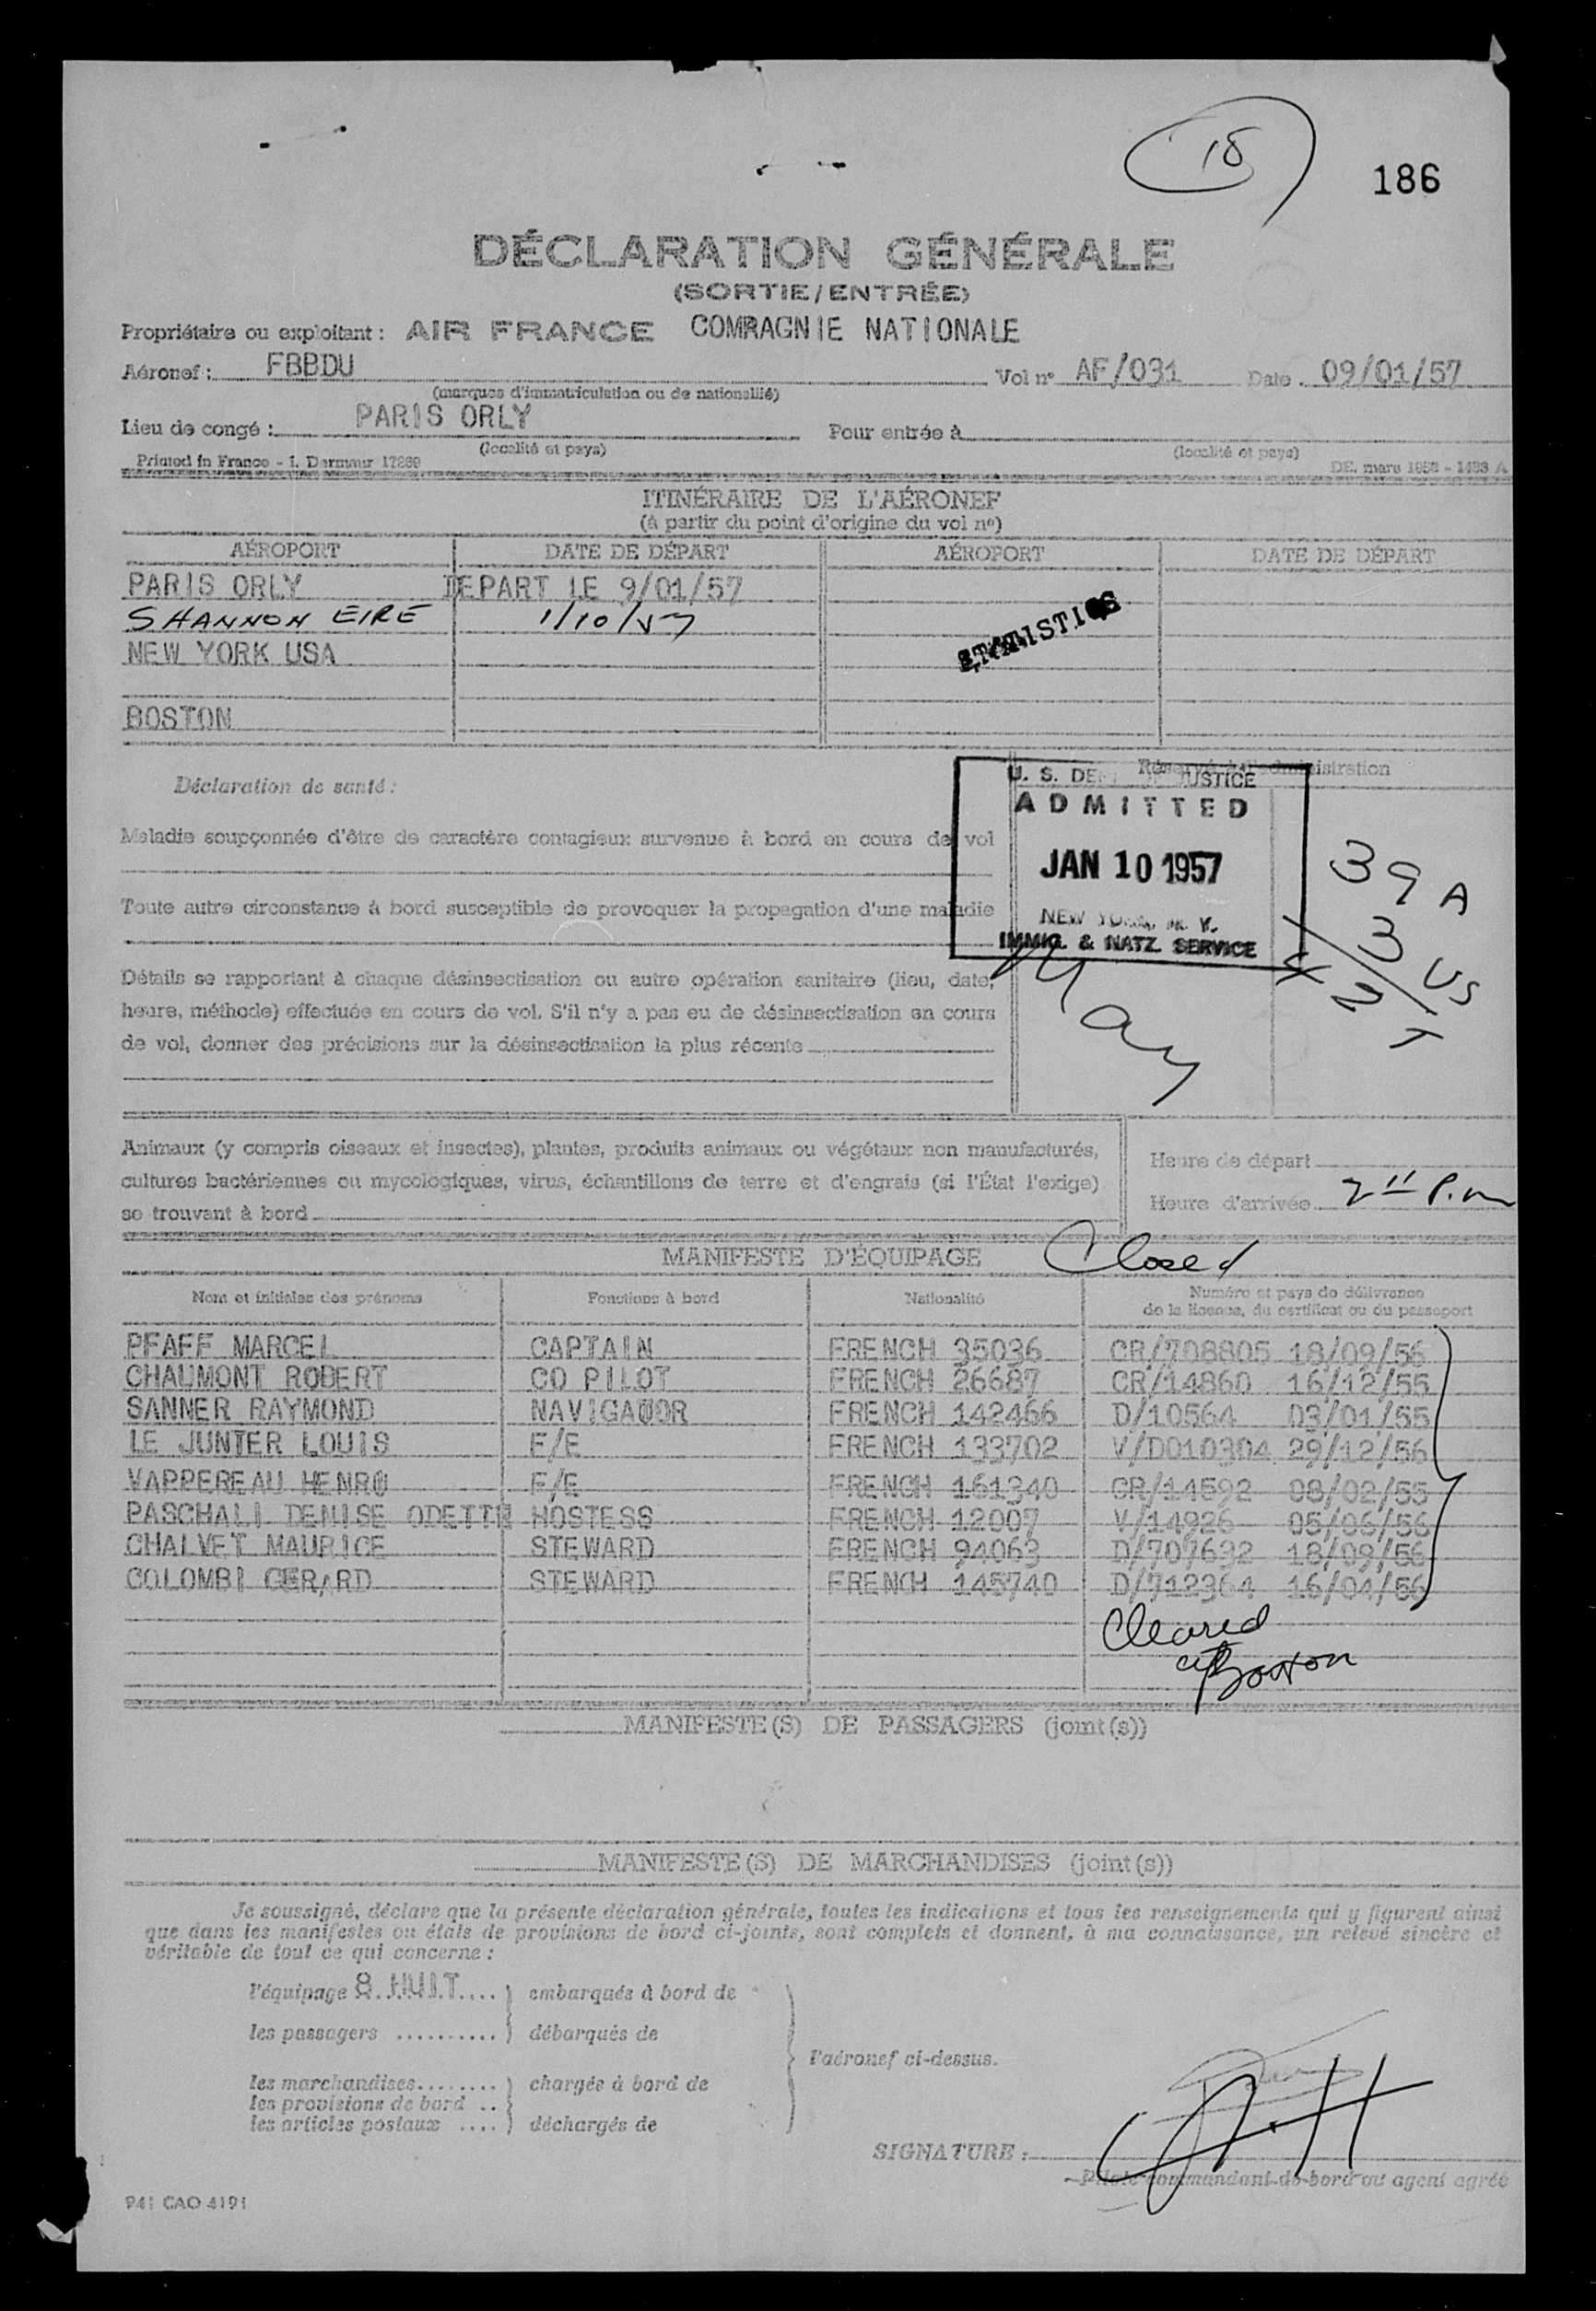 18
186
DÉCLARATION GÉNÉRALE
(SORTIE/ENTRÉE)
Propriétaire ou exploitant : AIR FRANCE COMRAGNIE NATIONALE
Aéronef : FBBDU Vol nº AF/031 Date 09/01/57
(marques d'immatriculation ou de nationalité)
Lieu de congé : PARIS ORLY Pour entrée à
(localité et pays) (localité et pays)
Printed in France - I. Dermour 17239 DE. mars 1953 - 1433 A
ITINÉRAIRE DE L'AÉRONEF
(à partir du point d'origine du vol nº)
AÉROPORT DATE DE DÉPART AÉROPORT DATE DE DÉPART
PARIS ORLY DEPART LE 9/01/57
SHANNON EIRE 1/10/57
NEW YORK USA
STATISTICS
BOSTON
Réservé à l'administration
Déclaration de santé :
U. S. DEPT. OF JUSTICE
ADMITTED
JAN 10 1957
NEW YORK, N. Y.
IMMIG. & NATZ. SERVICE
39 A
3 US
42 T
Maladie soupçonnée d'être de caractère contagieux survenue à bord en cours de vol
Toute autre circonstance à bord susceptible de provoquer la propagation d'une maladie
Détails se rapportant à chaque désinsectisation ou autre opération sanitaire (lieu, date,
heure, méthode) effectuée en cours de vol. S'il n'y a pas eu de désinsectisation en cours
de vol, donner des précisions sur la désinsectisation la plus récente
Animaux (y compris oiseaux et insectes), plantes, produits animaux ou végétaux non manufacturés,
cultures bactériennes ou mycologiques, virus, échantillons de terre et d'engrais (si l'État l'exige)
se trouvant à bord
Heure de départ
Heure d'arrivée 2 11 P.m
MANIFESTE D'ÉQUIPAGE Closed
Nom et initiales des prénoms Fonctions à bord Nationalité Numéro et pays de délivrance
de la licence, du certificat ou du passeport
PFAFF MARCEL CAPTAIN FRENCH 35036 CR/708805 18/09/56
CHAUMONT ROBERT CO PILOT FRENCH 26687 CR/14860 16/12/55
SANNER RAYMOND NAVIGAUOR FRENCH 142466 D/10564 03/01/55
LE JUNTER LOUIS F/E FRENCH 133702 V/D010304 29/12/56
VAPPEREAU HENRU F/E FRENCH 161340 CR/14592 08/02/55
PASCHALI DENISE ODETTE HOSTESS FRENCH 12007 V/14926 05/06/56
CHALVET MAURICE STEWARD FRENCH 94063 D/707632 18/09/56
COLOMBI GERARD STEWARD FRENCH 145740 D/712364 16/04/56
Cleared
at Boston
MANIFESTE(S) DE PASSAGERS (joint(s))
MANIFESTE(S) DE MARCHANDISES (joint(s))
Je soussigné, déclare que la présente déclaration générale, toutes les indications et tous les renseignements qui y figurent ainsi
que dans les manifestes ou états de provisions de bord ci-joints, sont complets et donnent, à ma connaissance, un relevé sincère et
véritable de tout ce qui concerne :
l'équipage 8 HUIT embarqués à bord de
les passagers .......... débarqués de
l'aéronef ci-dessus.
les marchandises........ chargés à bord de
les provisions de bord ..
les articles postaux .... déchargés de
SIGNATURE :
Pilote commandant de bord ou agent agréé
P41 CAO 4191